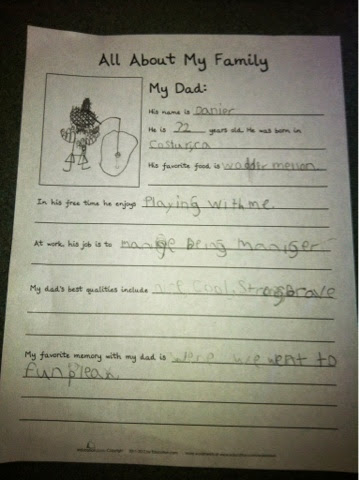 All About My Family
My Dad:
His name is Danier
He is 72 years old. He was born in
Costarca
His favorite food is wadder mellon
In his free time he enjoys Playing with me.
At work, his job is to manige being maniger.
My dad's best qualities include nice, cool, Strong brave
My favorite memory with my dad is were we went to
fun plean